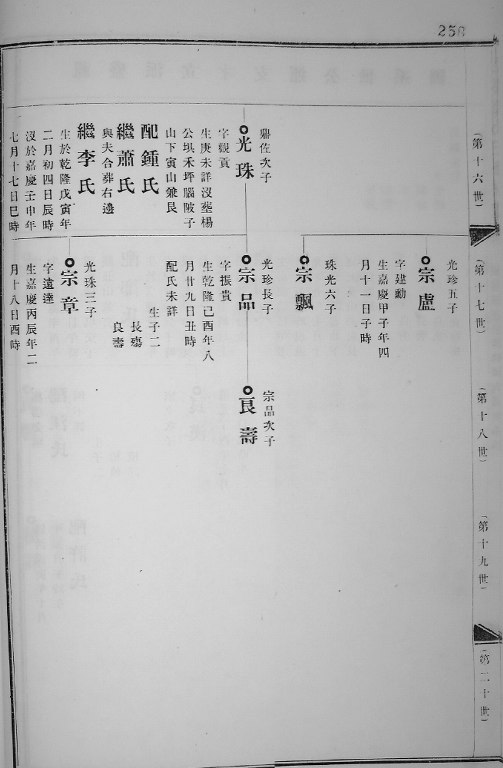 258
（第十六世）
鼎佐次子
光珠
字輟貢
生庚未詳沒塟楊
公埧禾坪腦陂子
山下寅山兼艮
配鍾氏
繼蕭氏
與夫合葬右邊
繼李氏
生於乾隆戊寅年
二月初四日辰時
沒於嘉慶壬申年
七月十七日巳時
（第十七世）
光珍五子
宗盧
字建勳
生嘉慶甲子年四
月十一日子時
珠光六子
宗飄
光珍長子
宗品
字振貴
生乾隆己酉年八
月廿九日丑時
配氏未詳
生子二
長殤
良壽
光珠三子
宗章
字遠達
生嘉慶丙辰年二
月十八日酉時
（第十八世）
宗品次子
良壽
（第十九世）
（第二十世）